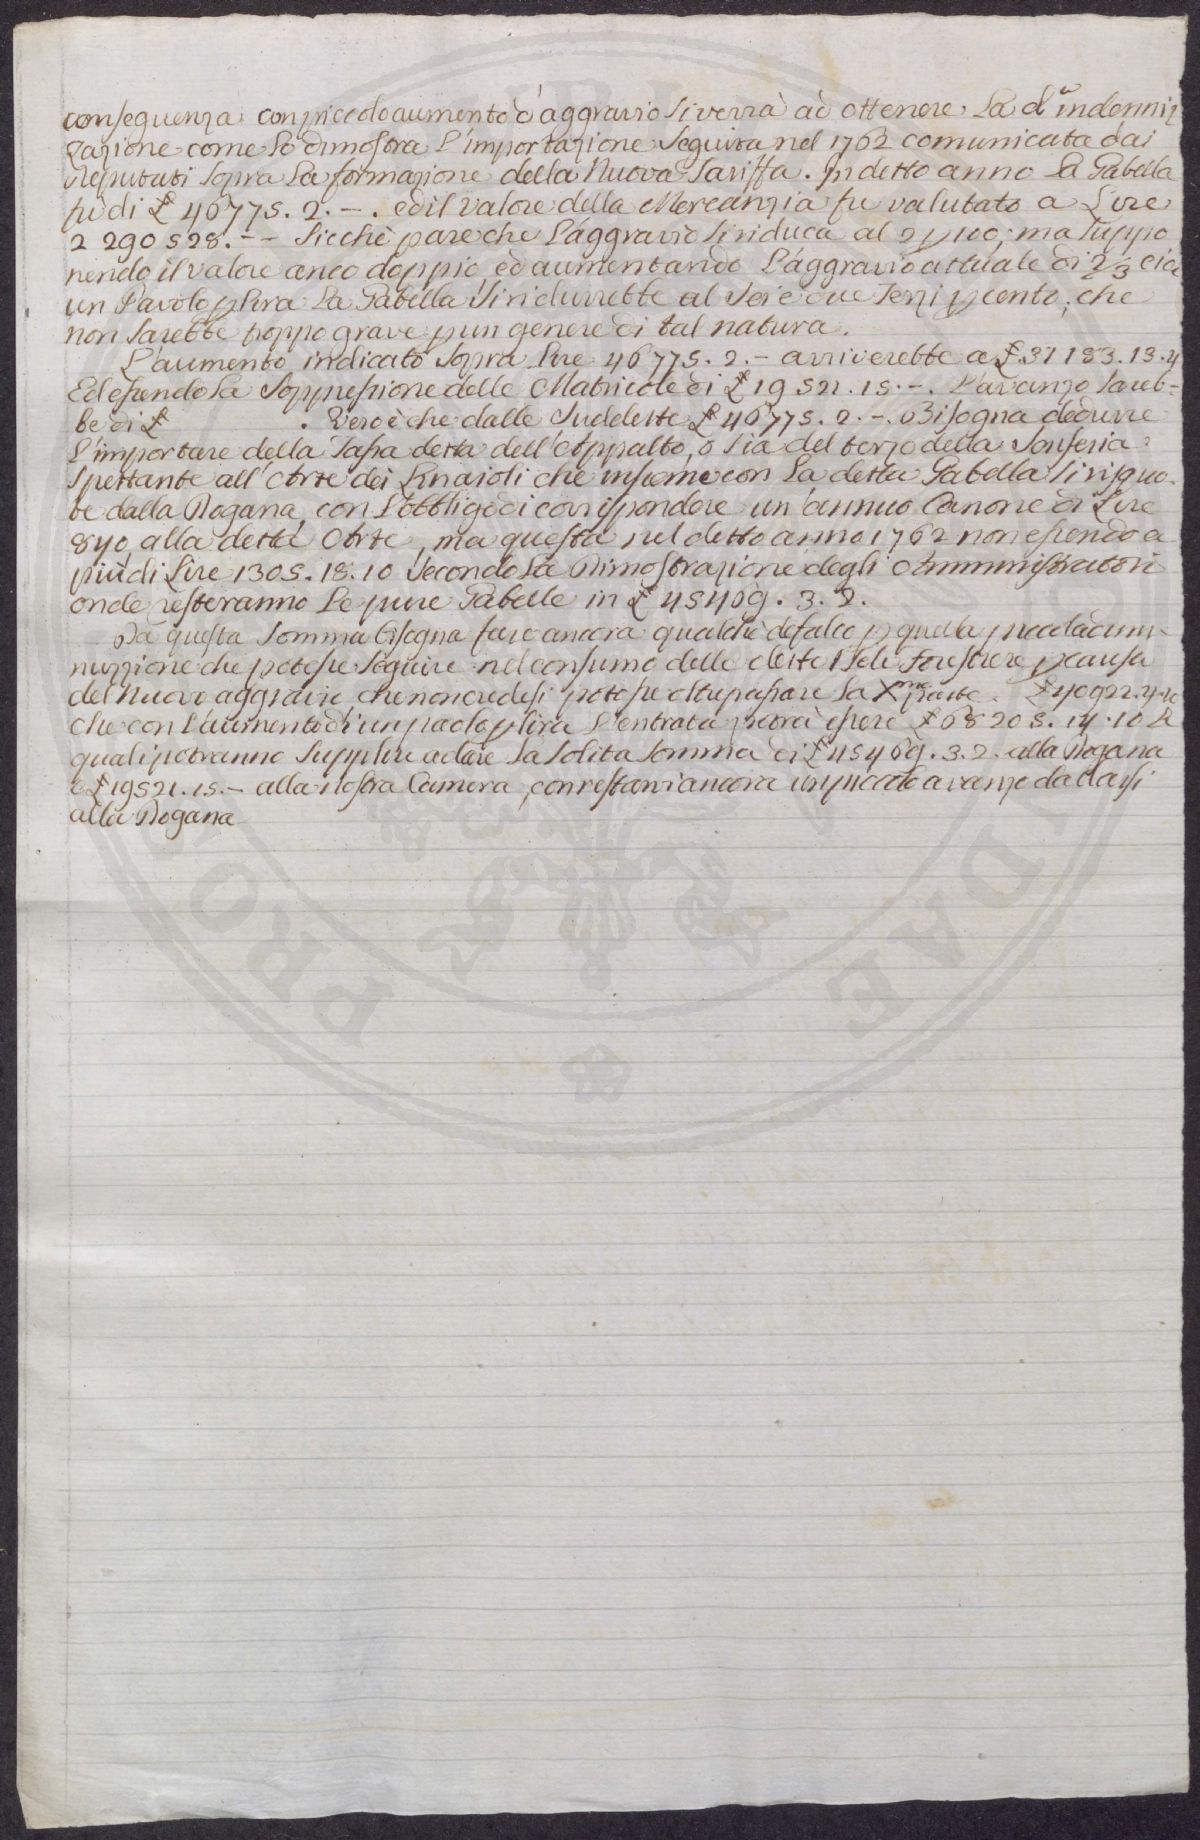 conseguenza con piccolo aumento d'aggravio si verrà ad ottenere la d.ª indenniz
zazione come lo dimostra l'importazione seguita nel 1762 comunicata dai
Deputati sopra la formazione della Nuova Tariffa. In detto anno la Gabella
fù di £ 46775. 2. –. ed il valore della Mercanzia fu valutato a Lire
2290528. – – sicche pare che l'aggravio si riduca al 2 p 100; ma suppo
nendo il valore anco doppio ed aumentando l'aggravio attuale di 2/3 cioè
un Pavolo p lira la Gabella si ridurrebbe al sei e due Terzi p cento, che
non sarebbe troppo grave p un genere di tal natura.
L'aumento indicato sopra lire 46775. 2. – arriverebbe a £ 31183. 13. 4
Ed essendo la soppressione delle Matricole di £ 19521. 15. –. l'avanzo sareb-
be di £ . Vero è che dalle suddette £ 46775. 2. –. Bisogna dedurre
l'importare della Tassa detta dell'Appalto, o sia del terzo della Senseria
spettante all'Arte dei Linaioli che insieme con la detta Gabella si risquo-
te dalla Dogana con l'obbligo di corrispondere un'annuo Canone di Lire
840 alla detta Arte, ma questa nel detto anno 1762 non essendo a
più di Lire 1305. 18. 10 secondo la Dimostrazione degli Amministratori
onde resteranno le pure Gabelle in £ 45469. 3. 2.
Da questa somma bisogna fare ancora qualche defalco p quella piccola dimi-
nuzione che potesse seguire nel consumo delle dette Tele forestiere p causa
del nuovo aggravio, che non credesi potesse oltrepassare la Xma parte £ 40922. 4. 10
che con l'aumento di un paolo p lira l'entrata potrà essere £ 68203. 14. 10 le
quali potranno supplire a dare la solita somma di £ 45469. 3. 2. alla Dogana
e £ 19521. 15. – alla nostra Camera, con restarvi ancora un piccolo avanzo da darsi
alla Dogana